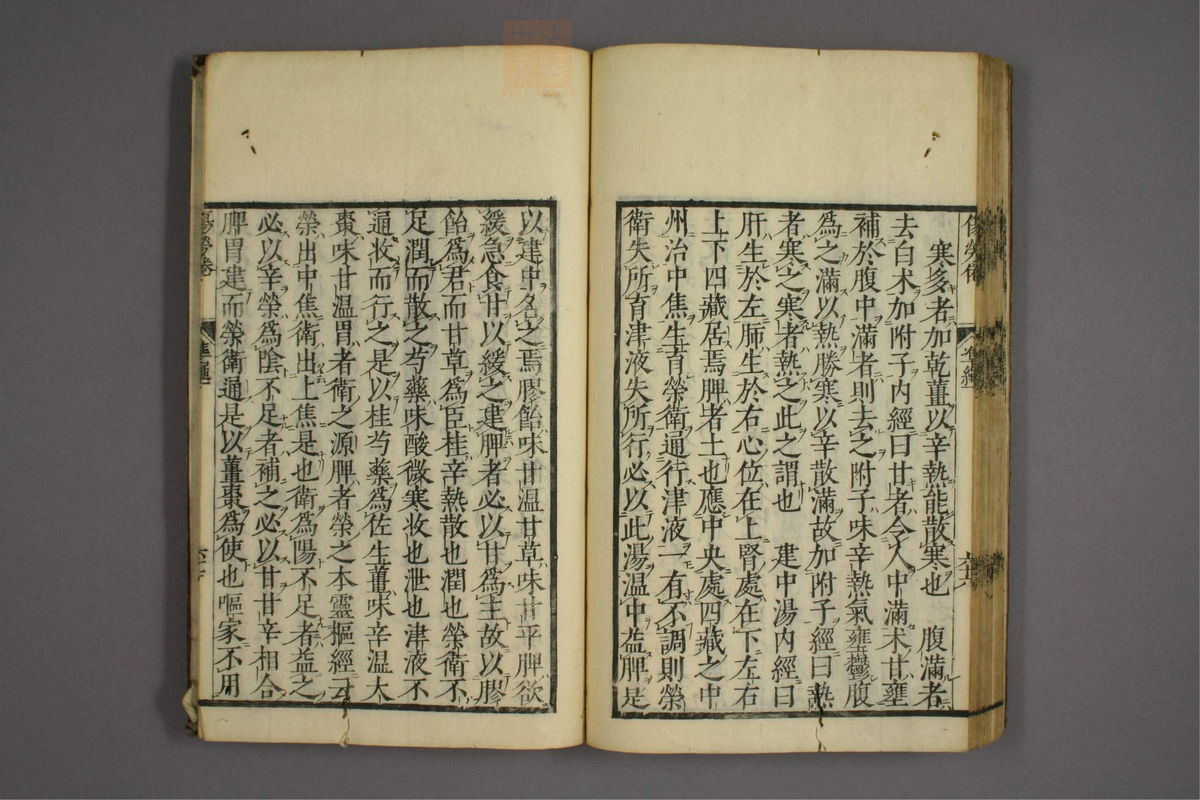 寒多者加乾薑以辛熱能散寒也　腹滿者
去白朮加附子內經曰甘者令人中滿朮甘壅
補於腹中滿者則去之附子味辛熱氣壅鬱腹
為之滿以熱勝寒以辛散滿故加附子經曰熱
者寒之寒者熱之此之謂也　建中湯內經曰
肝生於左肺生於右心位在上腎處在下左右
上下四藏居焉脾者土也應中央處四藏之中
州治中焦生育榮衛通行津液一有不調則榮
衛失所育津液失所行必以此湯溫中益脾是
以建中名之焉膠飴味甘溫甘草味甘平脾欲
緩急食甘以緩之建脾者必以甘爲主故以膠
飴爲君而甘草爲臣桂辛熱散也潤也榮衛不
足潤而散之芍藥味酸微寒收也泄也津液不
通收而行之是以桂芍藥爲佐生薑味辛溫大
棗味甘溫胃者衛之源脾者榮之本靈樞經云
榮出中焦衛出上焦是也衛爲陽不足者益之
必以辛榮爲陰不足者補之必以甘甘辛相合
脾胃建而榮衛通是以薑棗爲使也嘔家不用